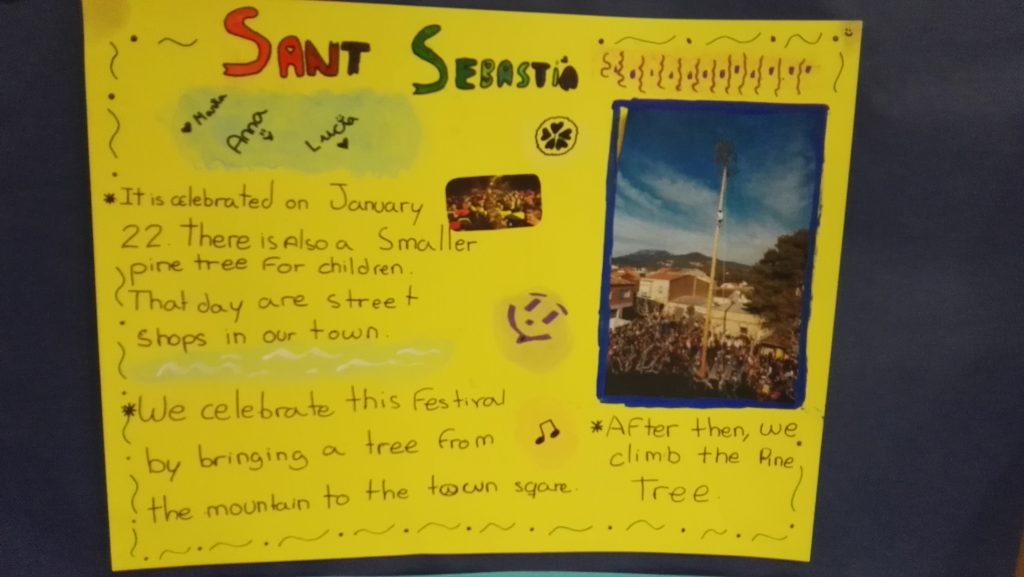 SANT SEBASTIÀ
Marta
Anna
Lucía
*It is celebrated on January
22. There is Also a Smaller
pine tree For children.
That day are street
shops in our town.
*We celebrate this Festival
by bringing a tree from
the mountain to the town sqare.
*After then, we
climb the Pine
Tree.